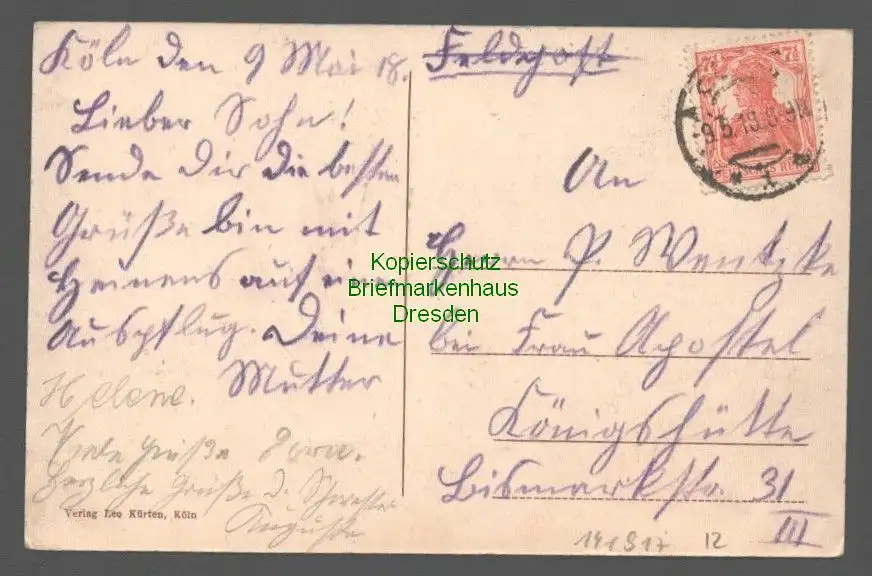 Köln den 9 Mai 18.
Lieber Sohn!
Sende Dir die besten
Grüße bin mit
Heinens auf ein
Auspflug. Deine
Mutter
Helene.
Viele Grüße
Herzliche Grüße d. Schwester
Auguste
Verlag Leo Kürten, Köln
Feldpost
7½ 7½
-9.5.18.8-9N
An
Herrn P. Wentzke
bei Frau Apostel
Königshütte
Bismarkstr. 31
III
Kopierschutz
Briefmarkenhaus
Dresden
12